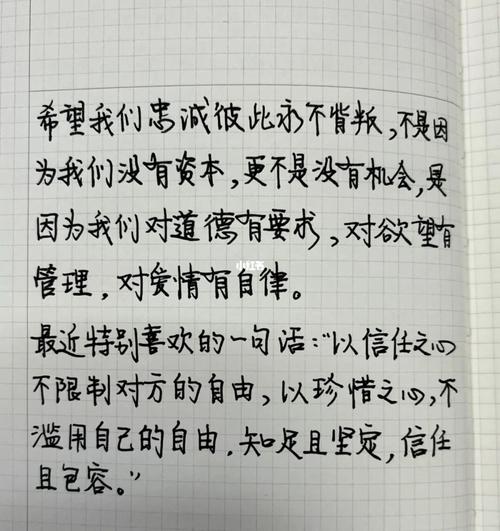 希望我们忠诚彼此永不背叛,不是因
为我们没有资本,更不是没有机会,是
因为我们对道德有要求,对欲望有
管理,对爱情有自律。
小红书
最近特别喜欢的一句话:“以信任之心
不限制对方的自由,以珍惜之心,不
滥用自己的自由.知足且坚定,信任
且包容。”